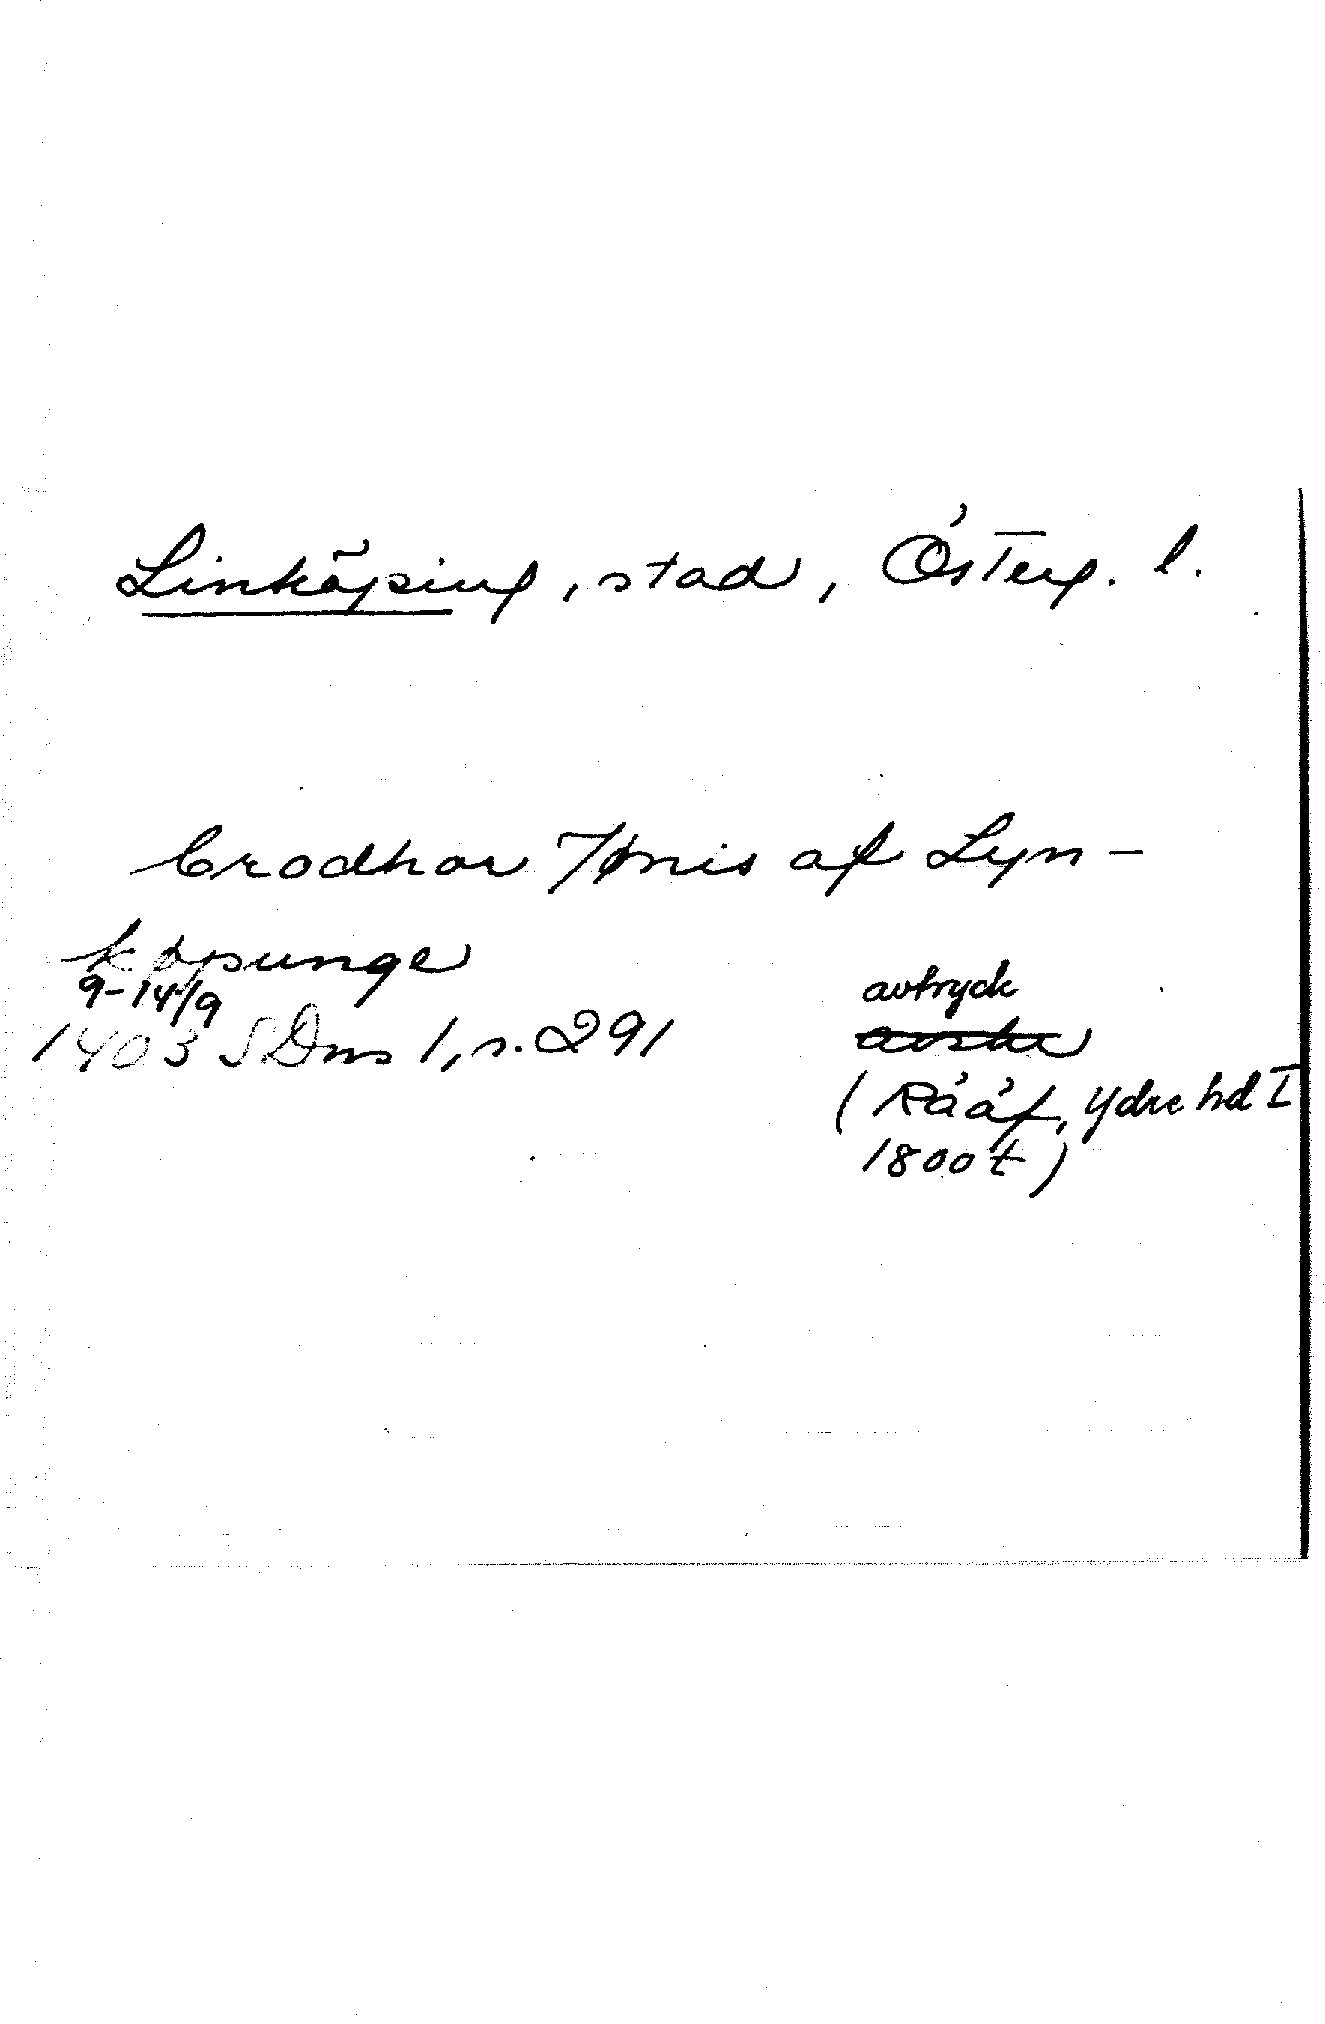 Linköping, stad, Österg. l.
brodhor Tønis af Lyn-
køpunge
9-14/9
1403 SDns 1, s. 291
avtryck
avskr
(Rääf, Ydre hd I
1800 t)